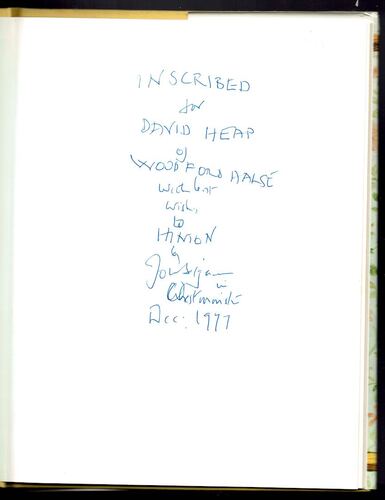 INSCRIBED
for
DAVID HEAP
of
WOODFORD HALSE
with best
wishes
to
HINTON
by
in
Dec: 1977